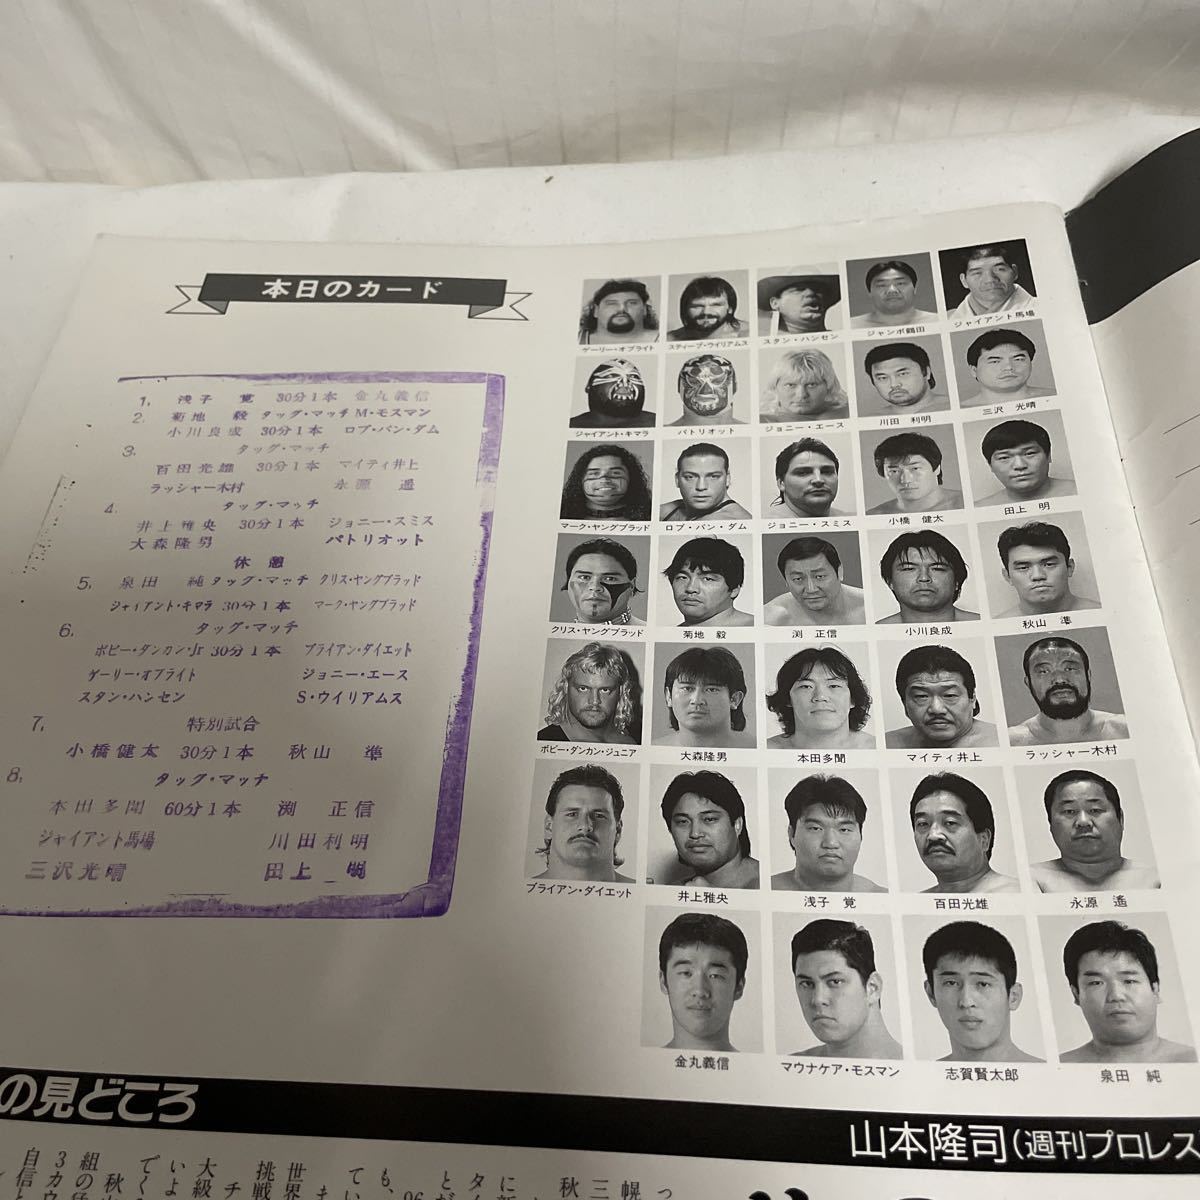 本日のカード
1, 浅子 覚 30分1本 金丸義信
2, 菊地 毅 タッグ・マッチ M・モスマン
小川良成 30分1本 ロブ・バン・ダム
3, タッグ・マッチ
百田光雄 30分1本 マイティ井上
ラッシャー木村 永源 遥
4, タッグ・マッチ
井上雅央 30分1本 ジョニー・スミス
大森隆男 パトリオット
休憩
5, 泉田 純 タッグ・マッチ クリス・ヤングブラッド
ジャイアント・キマラ 30分1本 マーク・ヤングブラッド
6, タッグ・マッチ
ボビー・ダンカン・Jr 30分1本 ブライアン・ダイエット
ゲーリー・オブライト ジョニー・エース
スタン・ハンセン S・ウイリアムス
7, 特別試合
小橋健太 30分1本 秋山 準
8, タッグ・マッチ
本田多聞 60分1本 渕 正信
ジャイアント馬場 川田利明
三沢光晴 田上 明
ゲーリー・オブライト スティーブ・ウイリアムス スタン・ハンセン ジャンボ鶴田 ジャイアント馬場
ジャイアント・キマラ パトリオット ジョニー・エース 川田利明 三沢光晴
マーク・ヤングブラッド ロブ・バン・ダム ジョニー・スミス 小橋健太 田上 明
クリス・ヤングブラッド 菊地 毅 渕 正信 小川良成 秋山 準
ボビー・ダンカン・ジュニア 大森隆男 本田多聞 マイティ井上 ラッシャー木村
ブライアン・ダイエット 井上雅央 浅子 覚 百田光雄 永源 遥
金丸義信 マウナケア・モスマン 志賀賢太郎 泉田 純
の見どころ
山本隆司(週刊プロレス